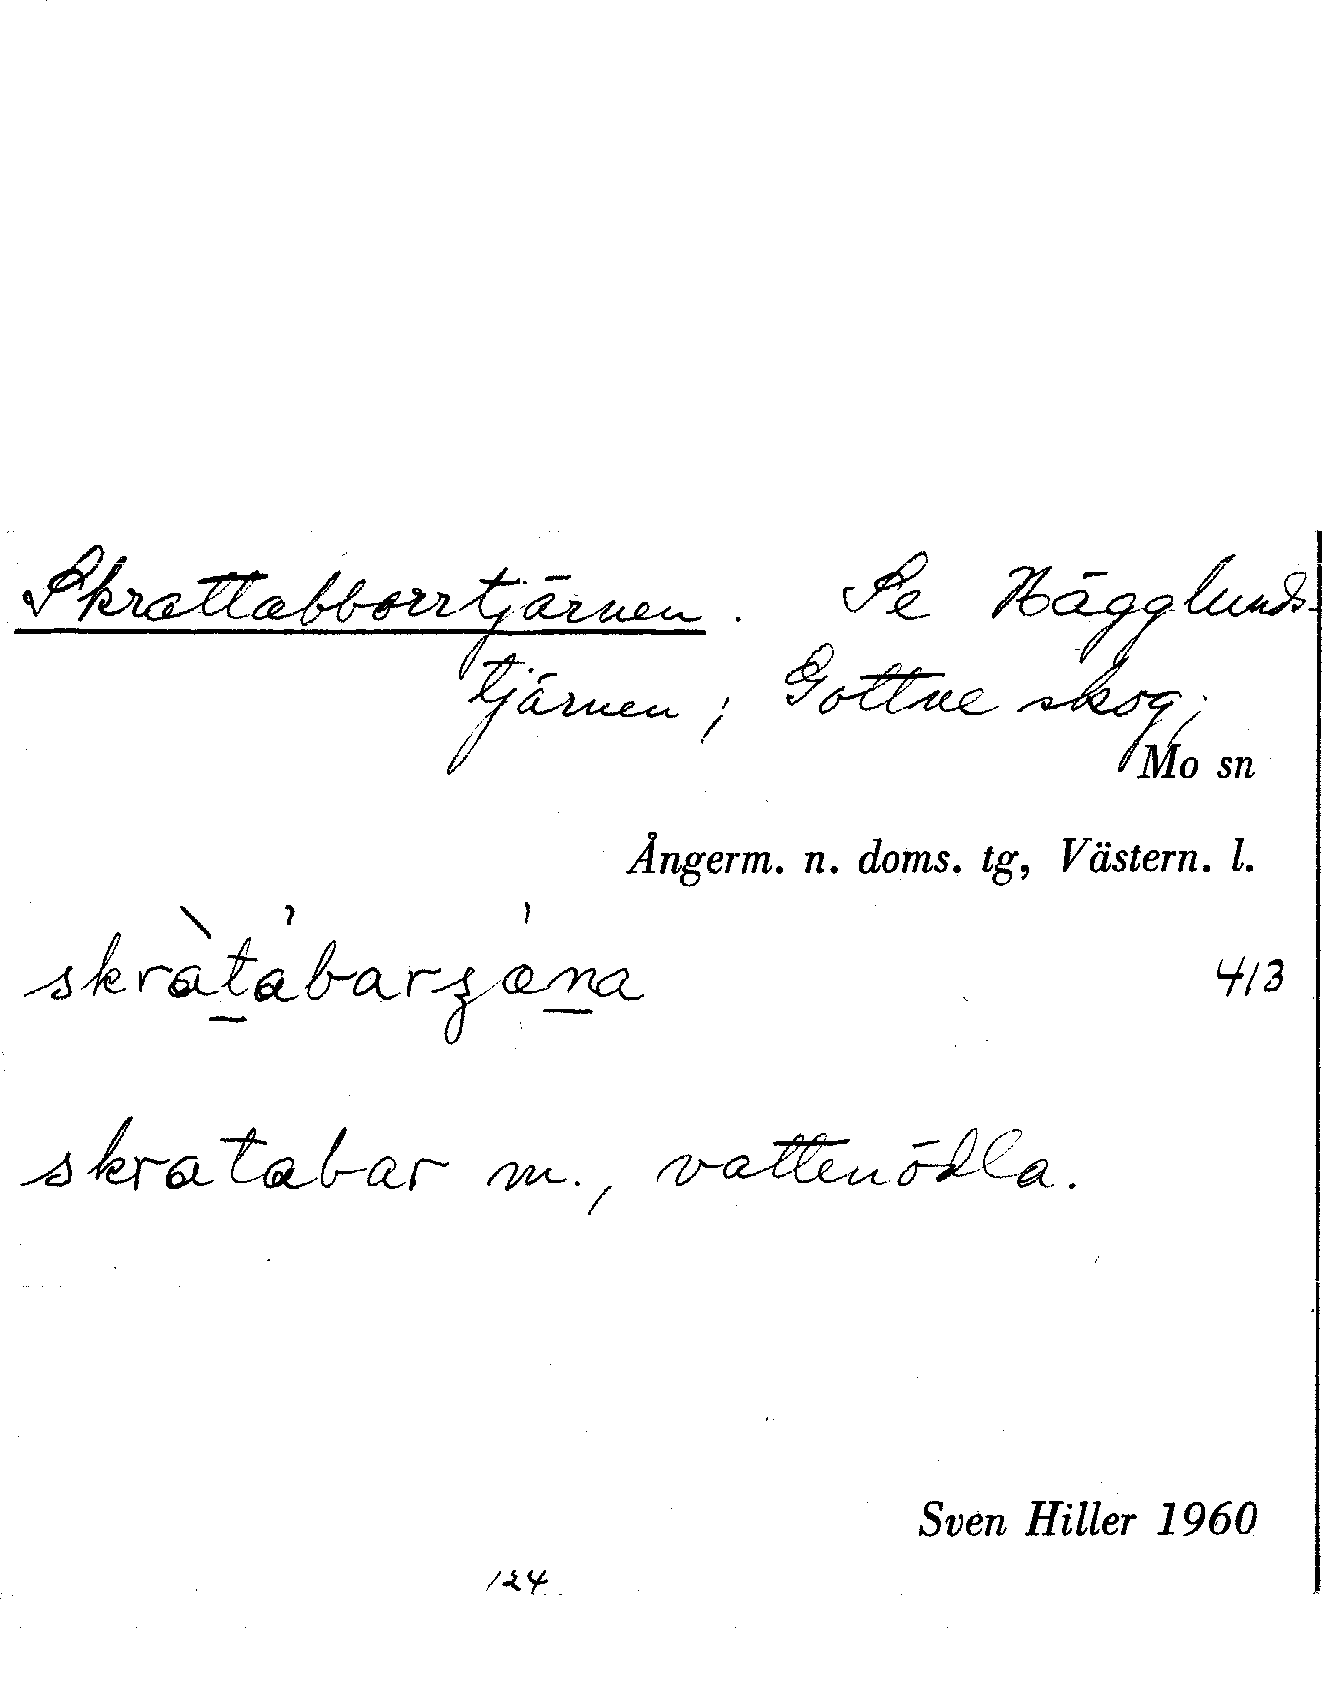 Skrattabborrtjärnen. Se Hägglunds-
tjärnen; Gottne skog;
Mo sn
Ångerm. n. doms. tg, Västern. l.
skràtábarʒæ̀na
413
skratabar m., vattenödla.
Sven Hiller 1960
124